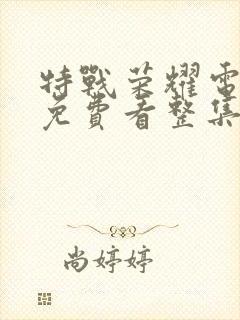 特戰荣耀電
免費看整集
尚婷婷